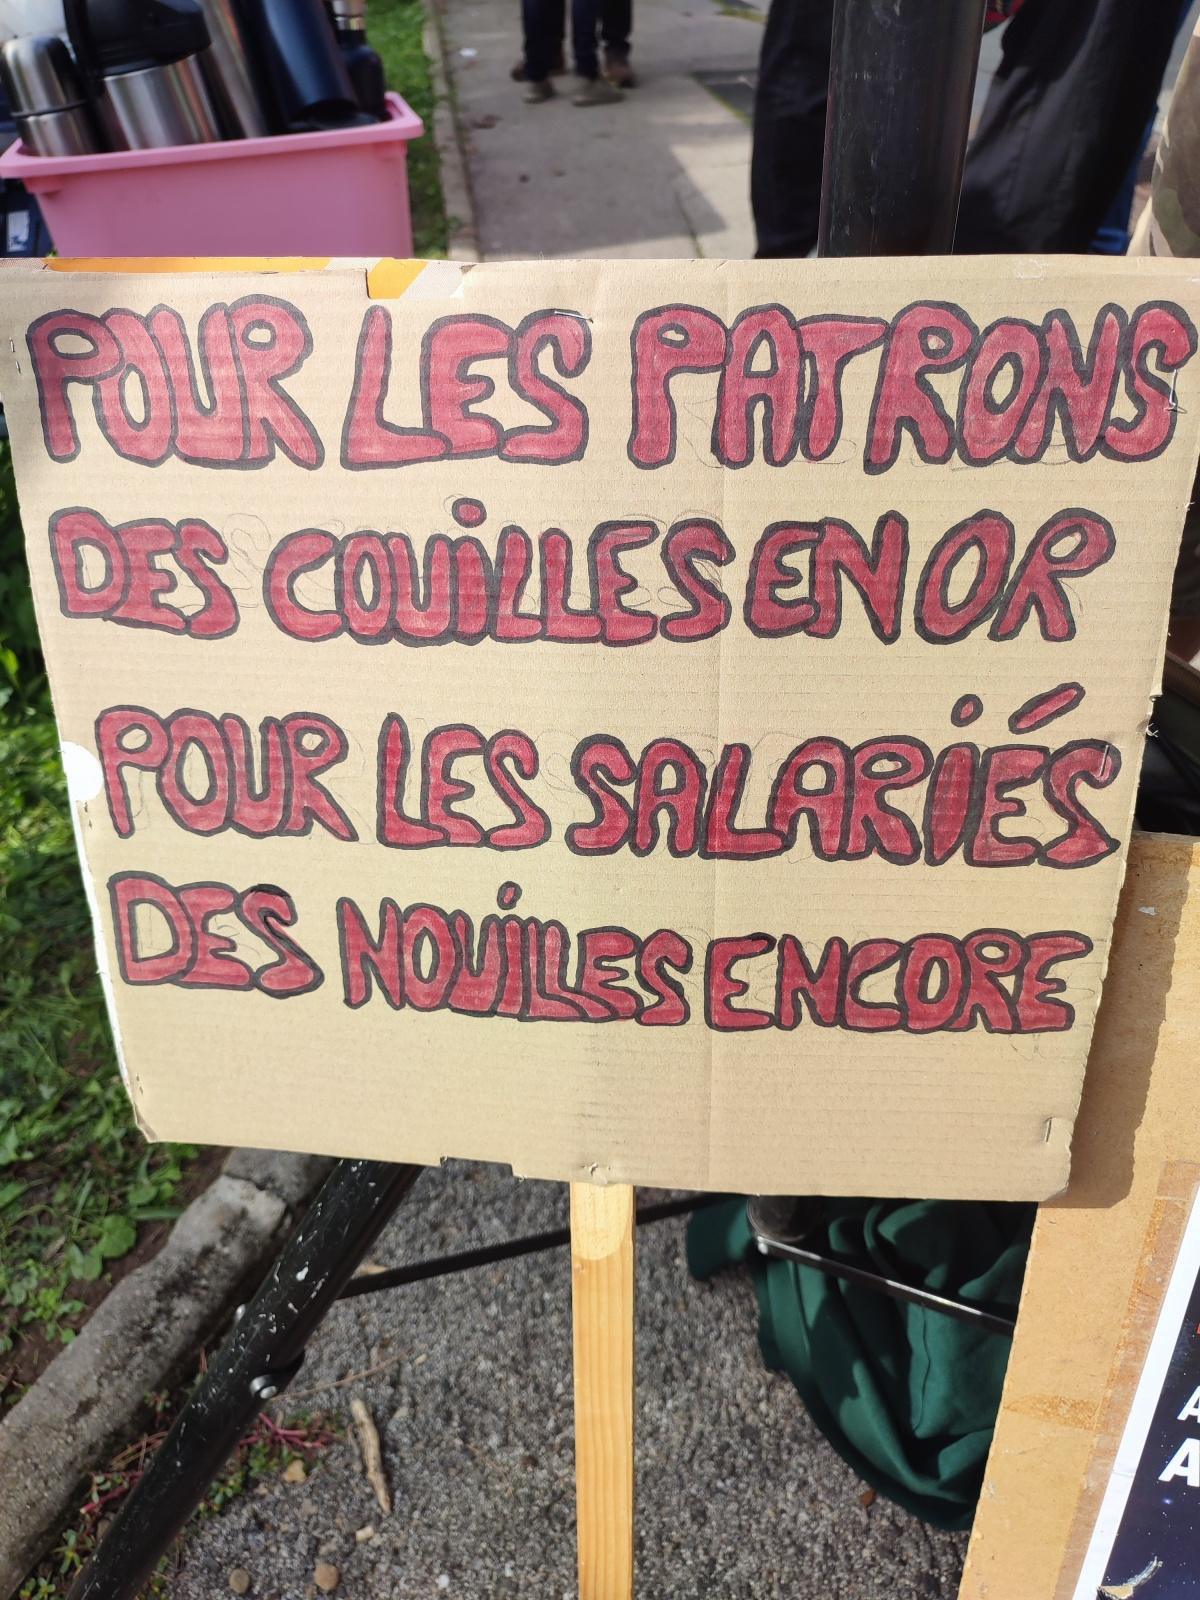 POUR LES PATRONS
DES COUiLLES EN OR
POUR LES SALARiÉS
DES NOUiLLES ENCORE